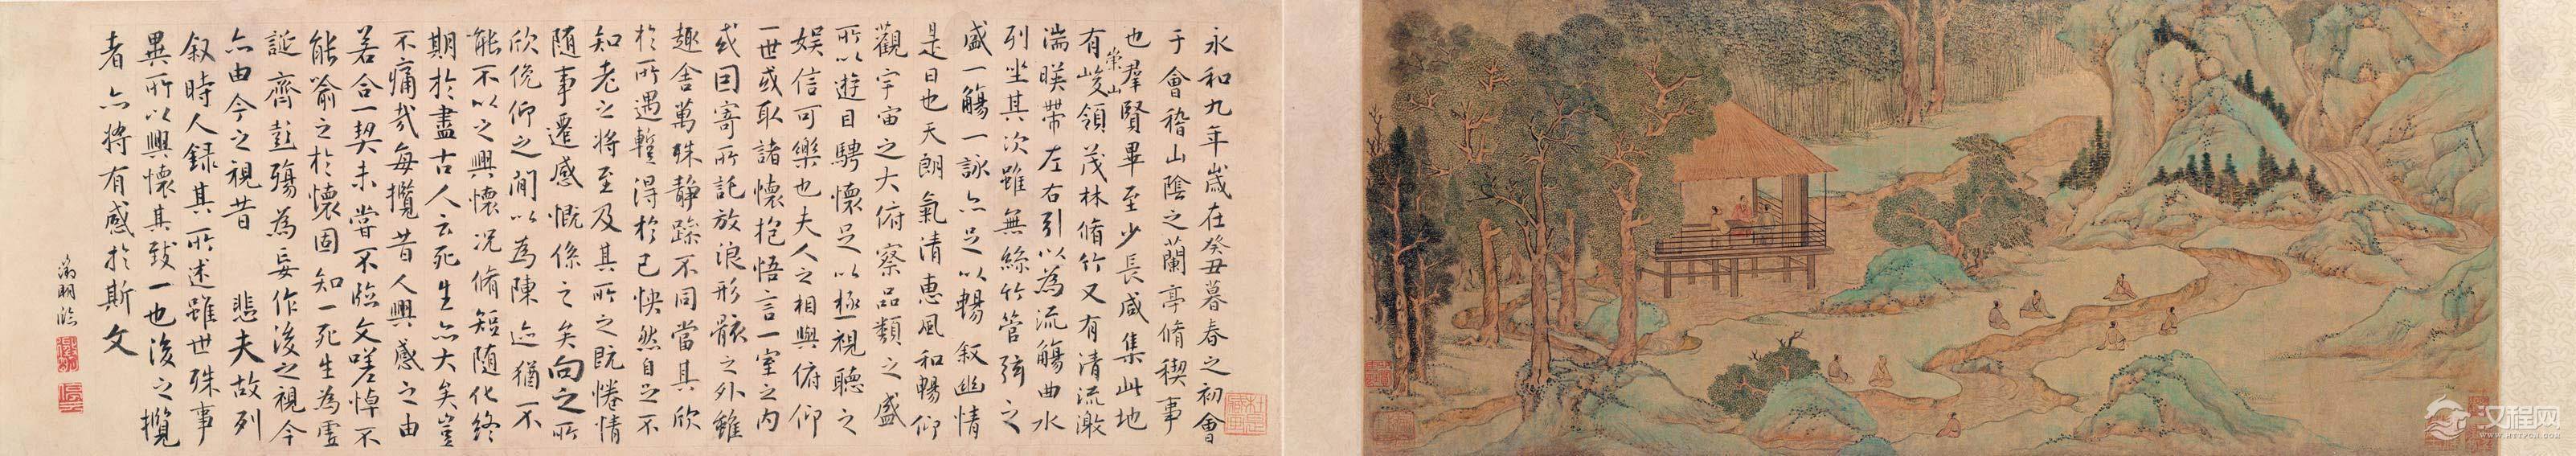 永和九年歲在癸丑暮春之初會
于會稽山陰之蘭亭脩稧事
也羣賢畢至少長咸集此地
有崇山峻領茂林脩竹又有清流激
湍暎帶左右引以為流觴曲水
列坐其次雖無絲竹管弦之
盛一觴一詠亦足以暢叙幽情
是日也天朗氣清惠風和暢仰
觀宇宙之大俯察品類之盛
所以遊目騁懷足以極視聽之
娛信可樂也夫人之相與俯仰
一世或取諸懷抱悟言一室之內
或因寄所託放浪形骸之外雖
趣舍萬殊靜躁不同當其欣
於所遇蹔得於己怏然自足不
知老之將至及其所之既惓情
隨事遷感慨係之矣向之所
欣俛仰之間以為陳迹猶不
能不以之興懷況脩短隨化終
期於盡古人云死生亦大矣豈
不痛哉每攬昔人興感之由
若合一契未嘗不臨文嗟悼不
能喻之於懷固知一死生為虛
誕齊彭殤為妄作後之視今
亦由今之視昔 悲夫故列
叙時人錄其所述雖世殊事
異所以興懷其致一也後之攬
者亦將有感於斯文
徵明臨
汉程网
WWW.HTTPCN.COM